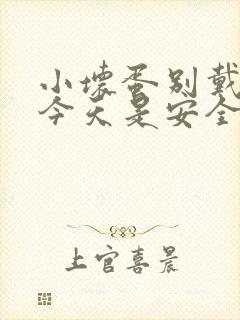 小坏蛋别戴
今天是安全
上官喜晨